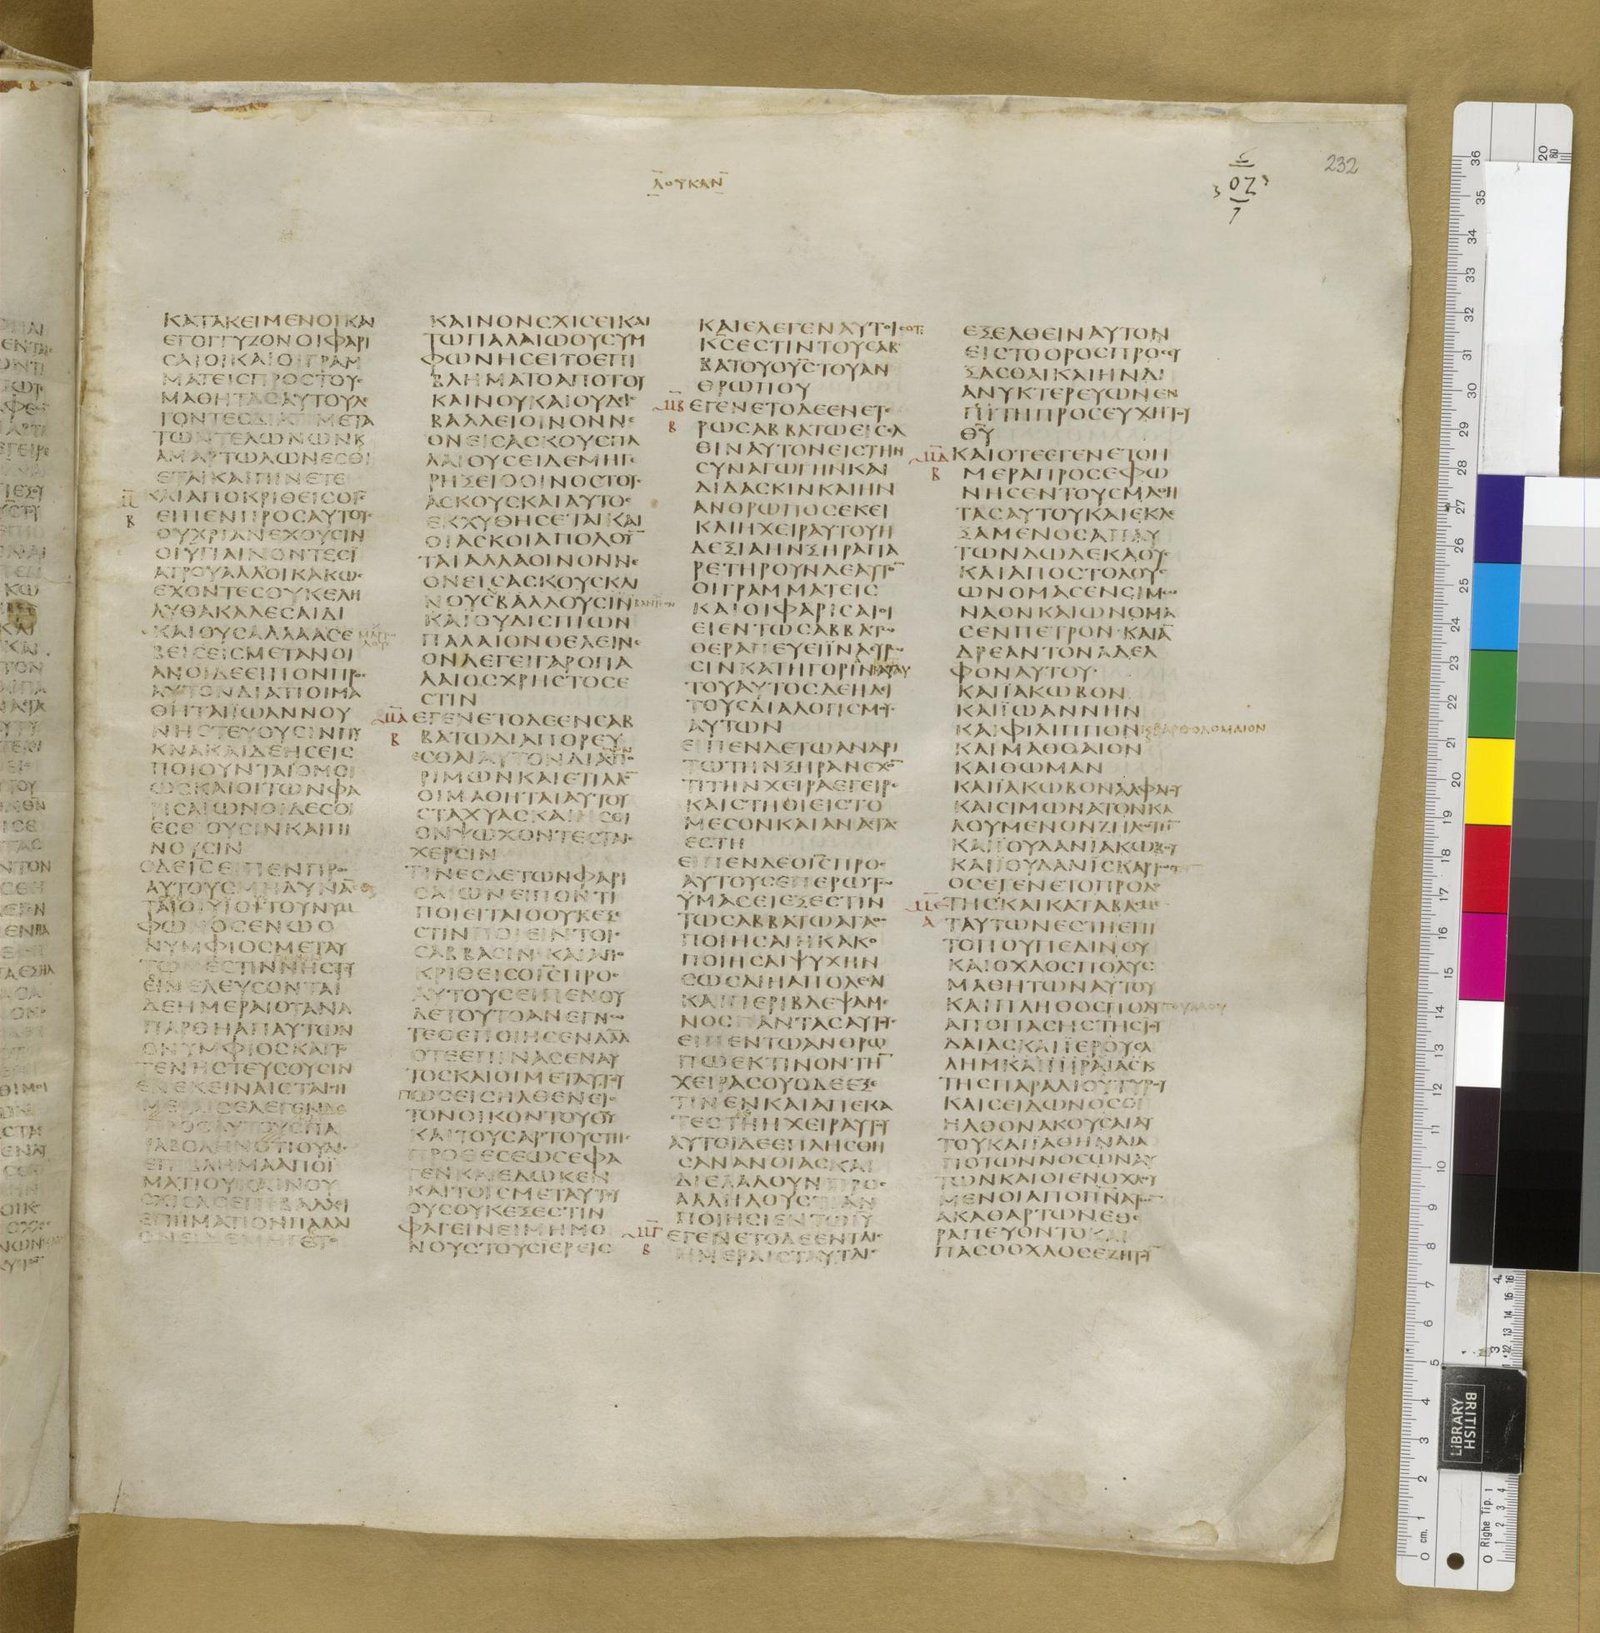 ΛΟΥΚΑΝ
ΟΖ
232
ΚΑΤΑΚΕΙΜΕΝΟΙ ΚΑΙ
ΕΓΟΓΓΥΖΟΝ ΟΙ ΦΑΡΙ
ΣΑΙΟΙ ΚΑΙ ΟΙ ΓΡΑΜ
ΜΑΤΕΙΣ ΠΡΟΣ ΤΟΥΣ
ΜΑΘΗΤΑΣ ΑΥΤΟΥ ΛΕ
ΓΟΝΤΕΣ ΔΙΑΤΙ ΜΕΤΑ
ΤΩΝ ΤΕΛΩΝΩΝ Κ
ΑΜΑΡΤΩΛΩΝ ΕΣΘΙ
ΕΤΑΙ ΚΑΙ ΠΙΝΕΤΕ
ΚΑΙ ΑΠΟΚΡΙΘΕΙΣ Ο ΙΣ
Β
ΕΙΠΕΝ ΠΡΟΣ ΑΥΤΟΥΣ
ΟΥ ΧΡΙΑΝ ΕΧΟΥΣΙΝ
ΟΙ ΥΓΙΑΙΝΟΝΤΕΣ Ι
ΑΤΡΟΥ ΑΛΛ ΟΙ ΚΑΚΩΣ
ΕΧΟΝΤΕΣ ΟΥΚ ΕΛΗ
ΛΥΘΑ ΚΑΛΕΣΑΙ ΔΙ
ΚΑΙΟΥΣ ΑΛΛΑ ΑΣΕ
ΒΕΙΣ ΕΙΣ ΜΕΤΑΝΟΙ
ΑΝ ΟΙ ΔΕ ΕΙΠΟΝ ΠΡΟΣ
ΑΥΤΟΝ ΔΙΑΤΙ ΟΙ ΜΑ
ΘΗΤΑΙ ΙΩΑΝΝΟΥ
ΝΗΣΤΕΥΟΥΣΙΝ ΠΥ
ΚΝΑ ΚΑΙ ΔΕΗΣΕΙΣ
ΠΟΙΟΥΝΤΑΙ ΟΜΟΙ
ΩΣ ΚΑΙ ΟΙ ΤΩΝ ΦΑ
ΡΙΣΑΙΩΝ ΟΙ ΔΕ ΣΟΙ
ΕΣΘΙΟΥΣΙΝ ΚΑΙ ΠΙ
ΝΟΥΣΙΝ
Ο ΔΕ ΙΣ ΕΙΠΕΝ ΠΡΟΣ
ΑΥΤΟΥΣ ΜΗ ΔΥΝΑ
ΤΑΙ ΟΙ ΥΙΟΙ ΤΟΥ ΝΥΜ
ΦΩΝΟΣ ΕΝ Ω Ο
ΝΥΜΦΙΟΣ ΜΕΤ ΑΥ
ΤΩΝ ΕΣΤΙΝ ΝΗΣΤ
ΕΙΝ ΕΛΕΥΣΟΝΤΑΙ
ΔΕ ΗΜΕΡΑΙ ΟΤΑΝ Α
ΠΑΡΘΗ ΑΠ ΑΥΤΩΝ
Ο ΝΥΜΦΙΟΣ ΚΑΙ Τ
ΤΕ ΝΗΣΤΕΥΣΟΥΣΙΝ
ΕΝ ΕΚΕΙΝΑΙΣ ΤΑΙΣ Η
ΜΕΡΑΙΣ ΕΛΕΓΕΝ ΔΕ
ΠΡΟΣ ΑΥΤΟΥΣ ΠΑ
ΡΑΒΟΛΗΝ ΟΤΙ ΟΥΔΙΣ
ΕΠΙΒΛΗΜΑ ΑΠΟ Ι
ΜΑΤΙΟΥ ΚΑΙΝΟΥ
ΣΧΙΣΑΣ ΕΠΙΒΑΛΛΕΙ
ΕΠΙ ΙΜΑΤΙΟΝ ΠΑΛΑΙ
ΟΝ ΕΙ ΔΕ ΜΗ ΓΕ ΤΟ
ΚΑΙΝΟΝ ΣΧΙΣΕΙ ΚΑΙ
ΤΩ ΠΑΛΑΙΩ ΟΥ ΣΥΜ
ΦΩΝΗΣΕΙ ΤΟ ΕΠΙ
ΒΛΗΜΑ ΤΟ ΑΠΟ ΤΟΥ
ΚΑΙΝΟΥ ΚΑΙ ΟΥΔΙΣ
ΒΑΛΛΕΙ ΟΙΝΟΝ ΝΕ
ΟΝ ΕΙΣ ΑΣΚΟΥΣ ΠΑ
ΛΑΙΟΥΣ ΕΙ ΔΕ ΜΗ ΓΕ
ΡΗΞΕΙ Ο ΟΙΝΟΣ ΤΟΥΣ
ΑΣΚΟΥΣ ΚΑΙ ΑΥΤΟΣ
ΕΚΧΥΘΗΣΕΤΑΙ ΚΑΙ
ΟΙ ΑΣΚΟΙ ΑΠΟΛΟΥΝ
ΤΑΙ ΑΛΛΑ ΟΙΝΟΝ ΝΕ
ΟΝ ΕΙΣ ΑΣΚΟΥΣ ΚΑΙ
ΝΟΥΣ ΒΑΛΛΟΥΣΙΝ
ΚΑΙ ΟΥΔΙΣ ΠΙΩΝ
ΠΑΛΑΙΟΝ ΘΕΛΕΙ ΝΕ
ΟΝ ΛΕΓΕΙ ΓΑΡ Ο ΠΑ
ΛΑΙΟΣ ΧΡΗΣΤΟΣ Ε
ΣΤΙΝ
ΜΑ ΕΓΕΝΕΤΟ ΔΕ ΕΝ ΣΑΒ
Β ΒΑΤΩ ΔΙΑΠΟΡΕΥ
ΕΣΘΑΙ ΑΥΤΟΝ ΔΙΑ ΣΠΟ
ΡΙΜΩΝ ΚΑΙ ΕΤΙΛΛΟΝ
ΟΙ ΜΑΘΗΤΑΙ ΑΥΤΟΥ
ΣΤΑΧΥΑΣ ΚΑΙ ΗΣΘΙ
ΟΝ ΨΩΧΟΝΤΕΣ ΤΑΙΣ
ΧΕΡΣΙΝ
ΤΙΝΕΣ ΔΕ ΤΩΝ ΦΑΡΙ
ΣΑΙΩΝ ΕΙΠΟΝ ΤΙ
ΠΟΙΕΙΤΑΙ Ο ΟΥΚ ΕΞΕ
ΣΤΙΝ ΠΟΙΕΙΝ ΤΟΙΣ
ΣΑΒΒΑΣΙΝ ΚΑΙ ΑΠΟ
ΚΡΙΘΕΙΣ Ο ΙΣ ΠΡΟΣ
ΑΥΤΟΥΣ ΕΙΠΕΝ ΟΥ
ΔΕ ΤΟΥΤΟ ΑΝΕΓΝΩ
ΤΕ Ο ΕΠΟΙΗΣΕΝ ΔΑΔ
ΟΤΕ ΕΠΙΝΑΣΕΝ ΑΥ
ΤΟΣ ΚΑΙ ΟΙ ΜΕΤ ΑΥΤΟΥ
ΠΩΣ ΕΙΣΗΛΘΕΝ ΕΙΣ
ΤΟΝ ΟΙΚΟΝ ΤΟΥ ΘΥ
ΚΑΙ ΤΟΥΣ ΑΡΤΟΥΣ ΤΗΣ
ΠΡΟΘΕΣΕΩΣ ΕΦΑ
ΓΕΝ ΚΑΙ ΕΔΩΚΕΝ
ΚΑΙ ΤΟΙΣ ΜΕΤ ΑΥΤΟΥ
ΟΥΣ ΟΥΚ ΕΞΕΣΤΙΝ
ΦΑΓΕΙΝ ΕΙ ΜΗ ΜΟ
ΝΟΥΣ ΤΟΥΣ ΙΕΡΕΙΣ
ΚΑΙ ΕΛΕΓΕΝ ΑΥΤΟΙΣ ΟΤΙ
ΚΣ ΕΣΤΙΝ ΤΟΥ ΣΑΒ
ΒΑΤΟΥ Ο ΥΣ ΤΟΥ ΑΝ
ΘΡΩΠΟΥ
ΜΒ ΕΓΕΝΕΤΟ ΔΕ ΕΝ ΕΤΕ
Β ΡΩ ΣΑΒΒΑΤΩ ΕΙΣΕΛ
ΘΙΝ ΑΥΤΟΝ ΕΙΣ ΤΗΝ
ΣΥΝΑΓΩΓΗΝ ΚΑΙ
ΔΙΔΑΣΚΙΝ ΚΑΙ ΗΝ
ΑΝΘΡΩΠΟΣ ΕΚΕΙ
ΚΑΙ Η ΧΕΙΡ ΑΥΤΟΥ Η
ΔΕΞΙΑ ΗΝ ΞΗΡΑ ΠΑ
ΡΕΤΗΡΟΥΝ ΔΕ ΑΥΤΟΝ
ΟΙ ΓΡΑΜΜΑΤΕΙΣ
ΚΑΙ ΟΙ ΦΑΡΙΣΑΙΟΙ
ΕΙ ΕΝ ΤΩ ΣΑΒΒΑΤΩ
ΘΕΡΑΠΕΥΕΙ ΙΝΑ ΕΥΡΩ
ΣΙΝ ΚΑΤΗΓΟΡΙΝ ΑΥ
ΤΟΥ ΑΥΤΟΣ ΔΕ ΗΔΙ
ΤΟΥΣ ΔΙΑΛΟΓΙΣΜΟΥΣ
ΑΥΤΩΝ
ΕΙΠΕΝ ΔΕ ΤΩ ΑΝΔΡΙ
ΤΩ ΤΗΝ ΞΗΡΑΝ ΕΧΟΝ
ΤΙ ΤΗΝ ΧΕΙΡΑ ΕΓΕΙΡΕ
ΚΑΙ ΣΤΗΘΙ ΕΙΣ ΤΟ
ΜΕΣΟΝ ΚΑΙ ΑΝΑΣΤΑΣ
ΕΣΤΗ
ΕΙΠΕΝ ΔΕ Ο ΙΣ ΠΡΟΣ
ΑΥΤΟΥΣ ΕΠΕΡΩΤΩ
ΥΜΑΣ ΕΙ ΕΞΕΣΤΙΝ
ΤΩ ΣΑΒΒΑΤΩ ΑΓΑΘΟ
ΠΟΙΗΣΑΙ Η ΚΑΚΟ
ΠΟΙΗΣΑΙ ΨΥΧΗΝ
ΣΩΣΑΙ Η ΑΠΟΛΕΣΑΙ
ΚΑΙ ΠΕΡΙΒΛΕΨΑΜΕ
ΝΟΣ ΠΑΝΤΑΣ ΑΥΤΟΥΣ
ΕΙΠΕΝ ΤΩ ΑΝΘΡΩ
ΠΩ ΕΚΤΙΝΟΝ ΤΗΝ
ΧΕΙΡΑ ΣΟΥ Ο ΔΕ ΕΞΕ
ΤΙΝΕΝ ΚΑΙ ΑΠΕΚΑ
ΤΕΣΤΗ Η ΧΕΙΡ ΑΥΤΟΥ
ΑΥΤΟΙ ΔΕ ΕΠΛΗΣΘΗ
ΣΑΝ ΑΝΟΙΑΣ ΚΑΙ
ΔΙΕΛΑΛΟΥΝ ΠΡΟΣ
ΑΛΛΗΛΟΥΣ ΤΙ ΑΝ
ΠΟΙΗΣΙΕΝ ΤΩ ΙΥ
ΜΓ ΕΓΕΝΕΤΟ ΔΕ ΕΝ ΤΑΙΣ
Β ΗΜΕΡΑΙΣ ΤΑΥΤΑΙΣ
ΕΞΕΛΘΕΙΝ ΑΥΤΟΝ
ΕΙΣ ΤΟ ΟΡΟΣ ΠΡΟΣΕΥ
ΞΑΣΘΑΙ ΚΑΙ ΗΝ ΔΙ
ΑΝΥΚΤΕΡΕΥΩΝ ΕΝ
ΤΗ ΠΡΟΣΕΥΧΗ ΤΟΥ
ΘΥ
ΜΔ ΚΑΙ ΟΤΕ ΕΓΕΝΕΤΟ Η
Β ΜΕΡΑ ΠΡΟΣΕΦΩ
ΝΗΣΕΝ ΤΟΥΣ ΜΑΘΗ
ΤΑΣ ΑΥΤΟΥ ΚΑΙ ΕΚΛΕ
ΞΑΜΕΝΟΣ ΑΠ ΑΥ
ΤΩΝ ΔΩΔΕΚΑ ΟΥΣ
ΚΑΙ ΑΠΟΣΤΟΛΟΥΣ
ΩΝΟΜΑΣΕΝ ΣΙΜΩ
ΝΑ ΟΝ ΚΑΙ ΩΝΟΜΑ
ΣΕΝ ΠΕΤΡΟΝ ΚΑΙ ΑΝ
ΔΡΕΑΝ ΤΟΝ ΑΔΕΛ
ΦΟΝ ΑΥΤΟΥ
ΚΑΙ ΙΑΚΩΒΟΝ
ΚΑΙ ΙΩΑΝΝΗΝ
ΚΑΙ ΦΙΛΙΠΠΟΝ Κ ΒΑΡΘΟΛΟΜΑΙΟΝ
ΚΑΙ ΜΑΘΘΑΙΟΝ
ΚΑΙ ΘΩΜΑΝ
ΚΑΙ ΙΑΚΩΒΟΝ ΑΛΦΑΙΟΥ
ΚΑΙ ΣΙΜΩΝΑ ΤΟΝ ΚΑ
ΛΟΥΜΕΝΟΝ ΖΗΛΩΤΗΝ
ΚΑΙ ΙΟΥΔΑΝ ΙΑΚΩΒΟΥ
ΚΑΙ ΙΟΥΔΑΝ ΙΣΚΑΡΙΩΘ
ΟΣ ΕΓΕΝΕΤΟ ΠΡΟΔΟ
ΜΕ ΤΗΣ ΚΑΙ ΚΑΤΑΒΑΣ ΜΕ
Α Τ ΑΥΤΩΝ ΕΣΤΗ ΕΠΙ
ΤΟΠΟΥ ΠΕΔΙΝΟΥ
ΚΑΙ ΟΧΛΟΣ ΠΟΛΥΣ
ΜΑΘΗΤΩΝ ΑΥΤΟΥ
ΚΑΙ ΠΛΗΘΟΣ ΠΟΛΥ ΤΟΥ ΛΑΟΥ
ΑΠΟ ΠΑΣΗΣ ΤΗΣ ΙΟΥ
ΔΑΙΑΣ ΚΑΙ ΙΕΡΟΥΣΑ
ΛΗΜ ΚΑΙ ΠΙΡΑΙΑΣ Κ
ΤΗΣ ΠΑΡΑΛΙΟΥ ΤΥΡΟΥ
ΚΑΙ ΣΕΙΔΩΝΟΣ ΟΙ
ΗΛΘΟΝ ΑΚΟΥΣΑΙ ΑΥ
ΤΟΥ ΚΑΙ ΙΑΘΗΝΑΙ Α
ΠΟ ΤΩΝ ΝΟΣΩΝ ΑΥ
ΤΩΝ ΚΑΙ ΟΙ ΕΝΟΧΛΟΥ
ΜΕΝΟΙ ΑΠΟ ΠΝΑΤΩΝ
ΑΚΑΘΑΡΤΩΝ ΕΘΕ
ΡΑΠΕΥΟΝΤΟ ΚΑΙ
ΠΑΣ Ο ΟΧΛΟΣ ΕΖΗΤΕΙ
BRITISH
LIBRARY